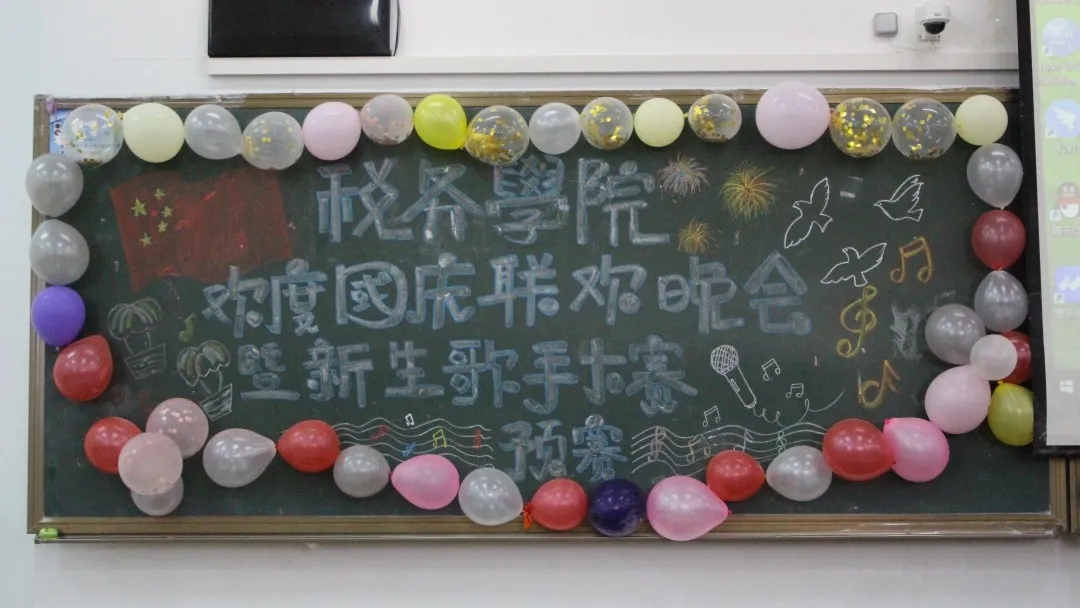 税务學院
欢度國庆联欢晚会
暨新生歌手大赛
预赛